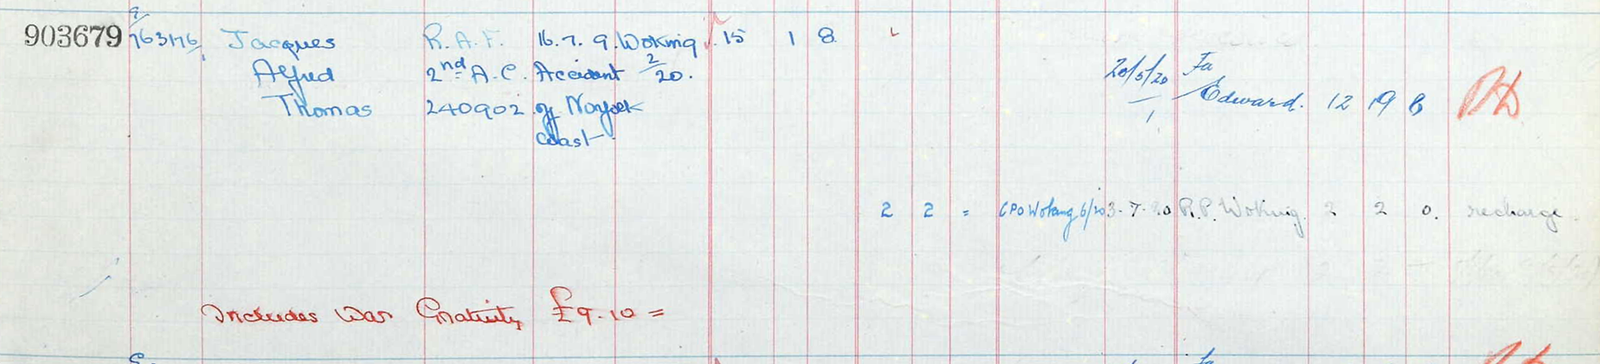 903679 763176/1 Jacques R.A.F. 16.7.9. Woking 15 1 8
Alfred 2nd A.C. Accident 2/20. 20/5/20 Fa
Thomas 240902 of Norfolk Edward. 12 19 8
Coast
2 2 = CPO Woking 6/20 3-7-20 R.P. Woking. 2 2 0. recharge.
Includes War Gratuity £9.10 =